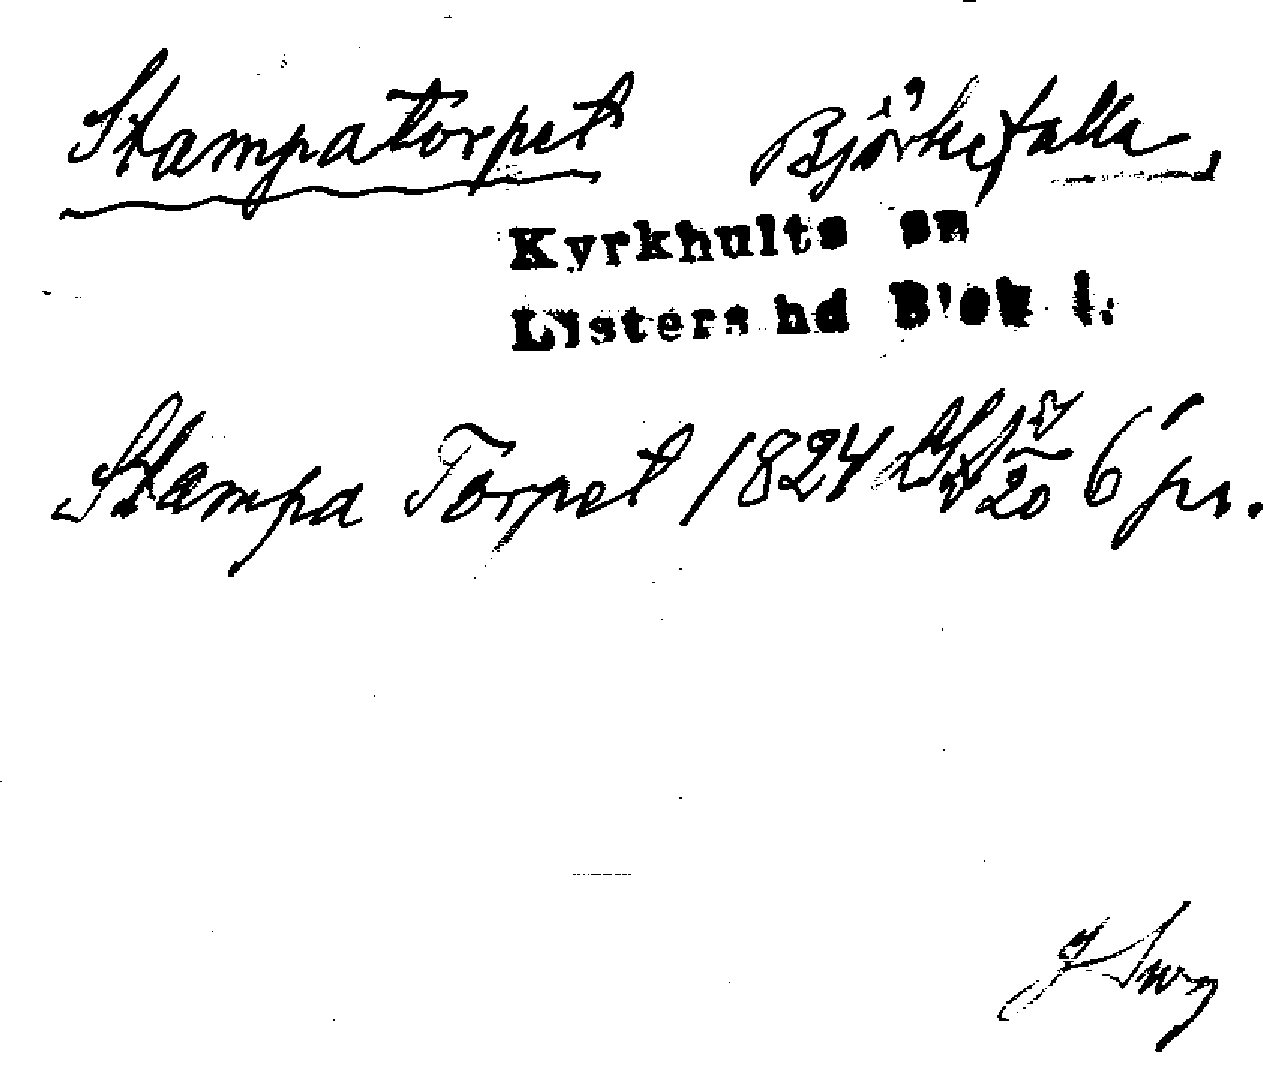 Stampatorpet Björkefalla
Kyrkhults sn
Listers hd Blek l.
Stampa Torpet 1824 20 6 pr.